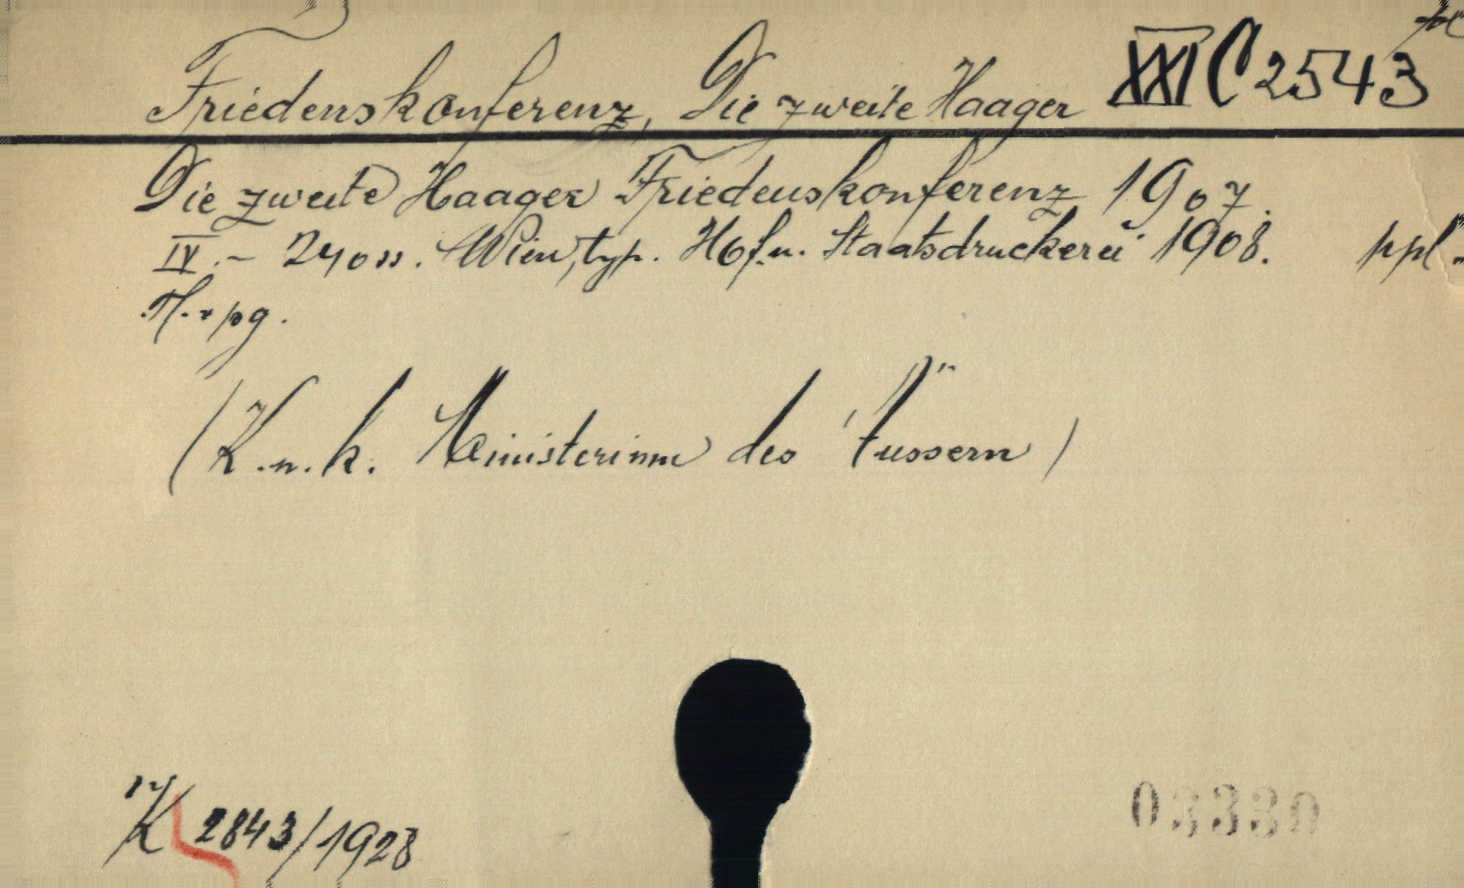 Friedenskonferenz, Die zweite Haager XXI C 2543
Die zweite Haager Friedenskonferenz 1907.
IV. - 240 ss. Wien, typ. Hof. u. Staatsdruckerei 1908. ppl.
(K. u. k. Ministerium des Äussern)
K 2843/1928
03330